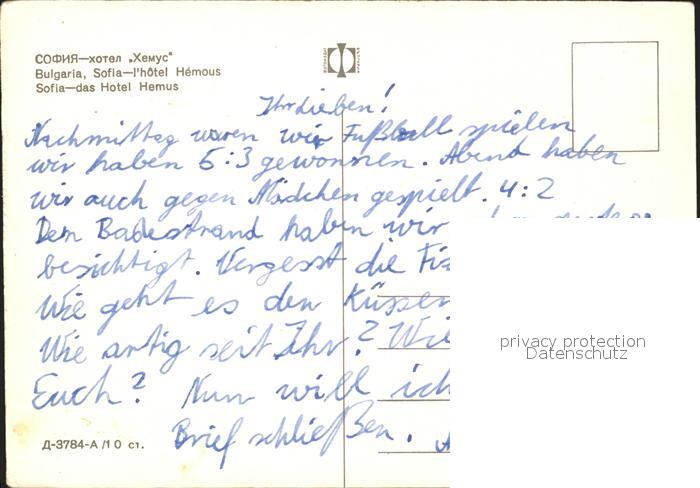 СОФИЯ—хотел „Хемус“
Bulgaria, Sofia—l'hôtel Hémous
Sofia—das Hotel Hemus
Ihr Lieben!
Nachmittag waren wir Fußball spielen
wir haben 6:3 gewonnen. Abend haben
wir auch gegen Mädchen gespielt. 4:2
Den Badestrand haben wir
besichtigt. Vergesst die
Wie geht es den
Wie artig seit Ihr? Wie
Euch? Nun will ich
Brief schließen.
Д-3784-А/10 ст.
privacy protection
Datenschutz